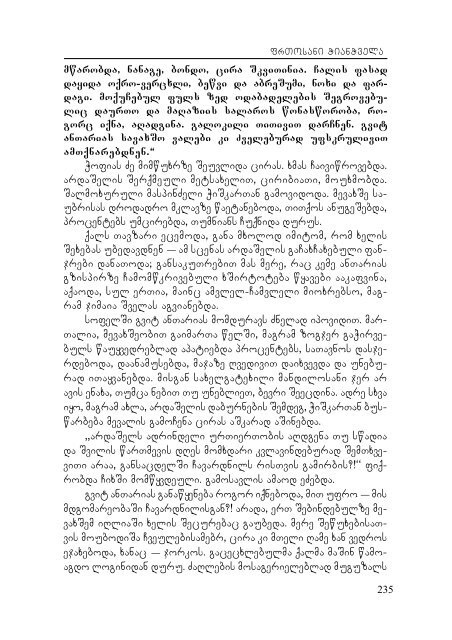 ფრთოსანი ჭიანჭველა
მწარობდა, ნანავე, ბონდო, ცირა შკვითინია. ჩალის ფასად
დაყიდა ოქრო-ვერცხლი, ბეწვი და აბრეშუმი, ნოხი და ფარ-
დაგი. მოქუჩებულ ფულს ზედ ოდაბადელების შეგროვებუ-
ლიც დაურთო და მაღაზიის სალაროს წონასწორობა, რო-
გორც იქნა, აღადგინა. გალოკილი თითივით დარჩნენ. გვიტ
ანთარიას სავახშო ვალები კი ძველებურად უფსკრულივით
ამთქნარებდნენ.“
ჭოფიას ძე მიმწუხრზე შეუვლიდა ცირას. ხმას ჩაივიწროვებდა.
არდაშელის შერქმეული მეტსახელით, ცირიბიათი, მოუხმობდა.
შალმოხურული მასპინძელი ჭიშკართან გამოვიდოდა. მევახშე სა-
უბრისას დროდადრო მკლავზე წაეტანებოდა, თითქოს ანუგეშებდა,
პროცენტებს უმცირებდა, თუმნიანს ჩუქნიდა დურუს.
ქალს თავზარი ეცემოდა, განა მხოლოდ იმიტომ, რომ ხელის
შეხებას უბედავდნენ — ამ სცენას არდაშელის გაჩახჩახებული ფან-
ჯრები დანათოდა; განსაკუთრებით მას მერე, რაც კემე ანთარიას
გზისპირზე ჩამომწკრივებული ხშირტოტება წყავები ააკაფვინა,
აქაოდა, სულ ერთია, მაინც ამვლელ-ჩამვლელი მიოხრებსო, მაგ-
რამ ჯიმაია შველას აგვიანებდა.
სოფელში გვიტ ანთარიას მომდურავს ძნელად იპოვიდით. მარ-
თალია, მევახშეობით გაიმართა წელში, მაგრამ ზოგჯერ გაჭირვე-
ბულს წაუყვედრებლად აპატიებდა პროცენტებს, სათავნოს დასჯე-
რდებოდა, დაანამუსებდა, მაჯაზე ღვედივით დაიხვევდა და უნებუ-
რად ითაყვანებდა. მისგან სახელგატეხილი მანდილოსანი ჯერ არ
ავის ენახა, თუმცა ნებით თუ უნებლიეთ, ბევრი შეეცდინა. ადრე სხვა
იყო, მაგრამ ახლა, არდაშელის დაბურნების შემდეგ, ჭიშკართან ბუს-
წარბება მევალის გამოჩენა ცირას აშკარად აშინებდა.
„არდაშელს ადრინდელი ურთიერთობის აღდგენა თუ სწადია
და შვილის წართმევის დღეს მომხდარი კვლავინდებურად შემთხვე-
ვითი არაა, განსაცდელში ჩავარდნილს რისთვის გამირბის?!“ ფიქ-
რობდა ჩიხში მომწყვდეული. გამოსავლის ამაოდ ეძებდა.
გვიტ ანთარიას განაწყენება როგორ იქნებოდა, მით უფრო — მის
მდგომარეობაში ჩავარდნილისგან?! არადა, ერთ შებინდებულზე მე-
ვახშემ იღლიაში ხელის შეცურებაც გაუბედა. მერე შეწუხებისათ-
ვის მოუბოდიშა ჩვეულებისამებრ, ცირა კი მთელი ღამე ხან ვედროს
ეჯახებოდა, ხანაც — ჯორკოს. გაცეცხლებულმა ქალმა მაშინ წამო-
აგდო ლოგინიდან დურუ. ძაღლების მოსაგერიებლად მუგუზალს
235